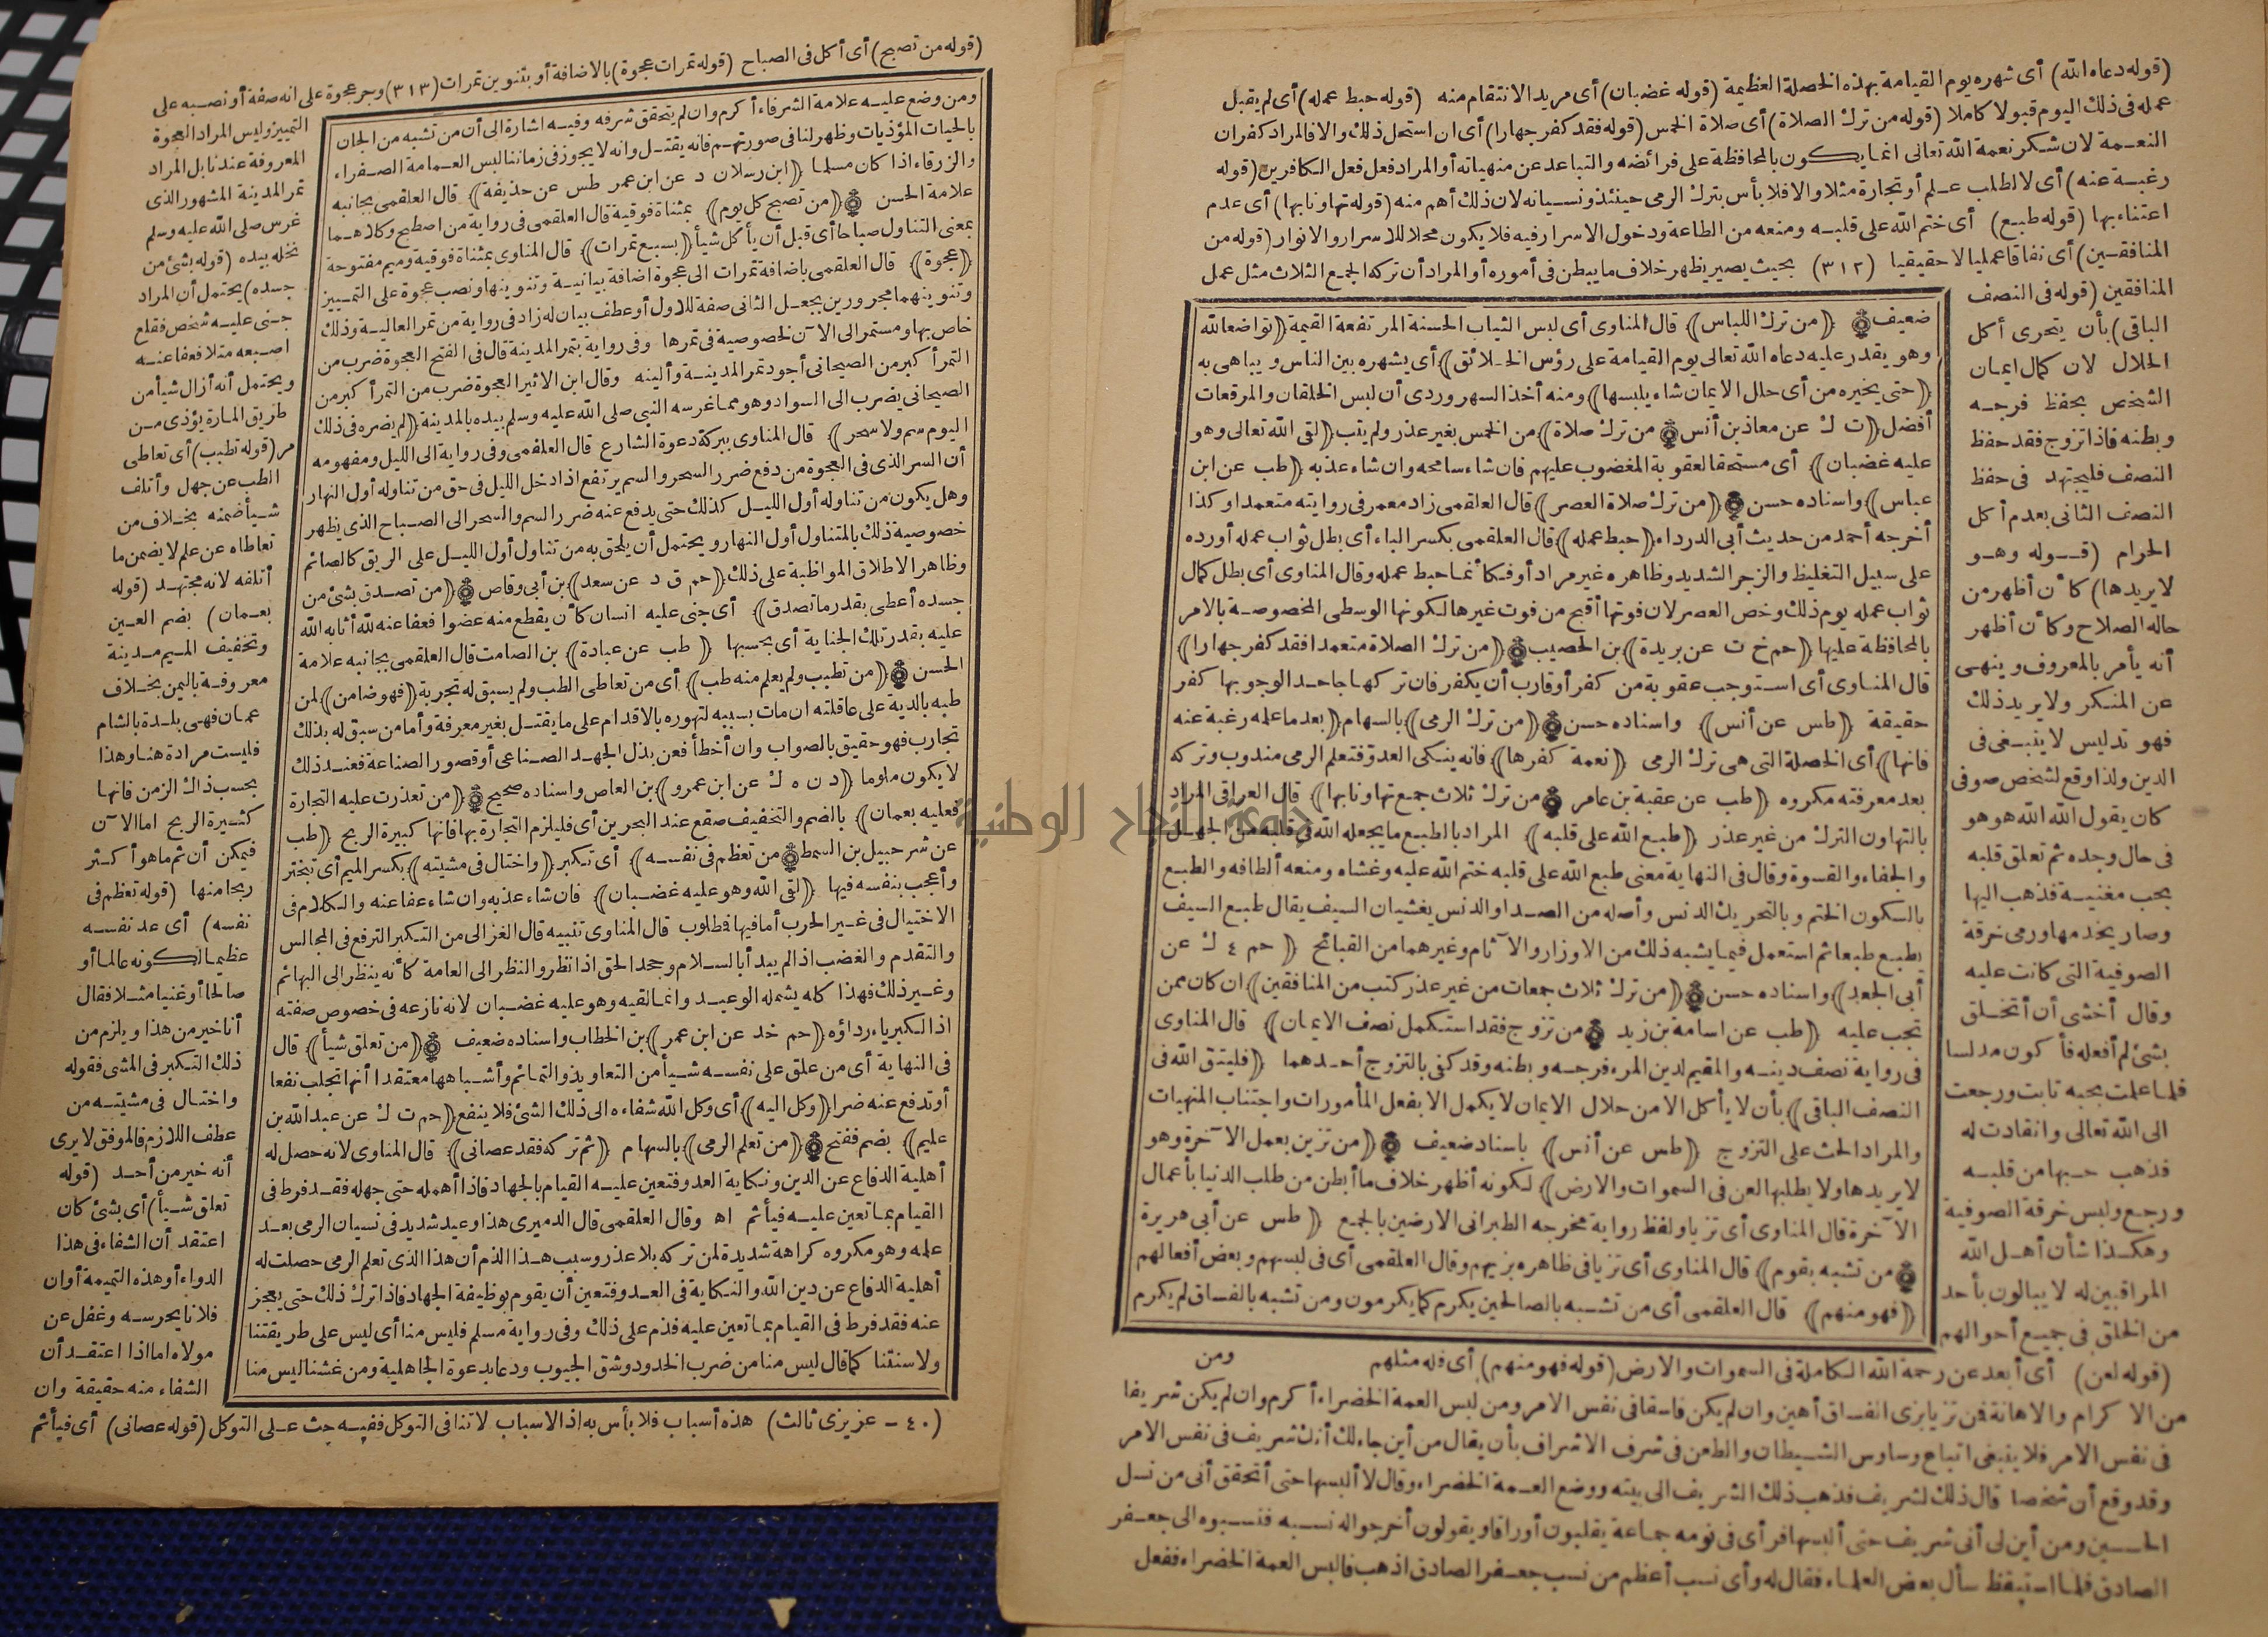 (قوله دعاه الله) أى شهره يوم القيامة بهذه الخصلة العظيمة (قوله غضبان) أى مريد الانتقام منه (قوله حبط عمله) أى لم يقبل
عمله فى ذلك اليوم قبولا كاملا (قوله من ترك الصلاة) أى صلاة الخمس (قوله فقد كفر جهارا) أى ان استحل ذلك والا فالمراد كفران
النعمة لان شكر نعمة الله تعالى انما يكون بالمحافظة على فرائضه والتباعد عن منهياته أو المراد فعل فعل الكافرين (قوله
رغبة عنه) أى لا لطلب علم أو تجارة مثلا والا فلا بأس بترك الرمى حينئذ ونسيانه لان ذلك أهم منه (قوله تهاونا بها) أى عدم
اعتناء بها (قوله طبع) أى ختم الله على قلبه ومنعه من الطاعة ودخول الاسرار فيه فلا يكون محلا للاسرار والانوار (قوله من
المنافقين) أى نفاقا عمليا لا حقيقيا (٣١٢) بحيث يصير يظهر خلاف ما يبطن فى أموره أو المراد أن تركه الجمع الثلاث مثل عمل
المنافقين (قوله فى النصف
الباقى) بأن يتحرى أكل
الحلال لان كمال ايمان
الشخص بحفظ فرجه
وبطنه فاذا تزوج فقد حفظ
النصف فليجتهد فى حفظ
النصف الثانى بعدم أكل
الحرام (قوله وهو
لا يريدها) كأن أظهر من
حاله الصلاح وكأن أظهر
أنه يأمر بالمعروف وينهى
عن المنكر ولا يريد ذلك
فهو تدليس لا ينبغى فى
الدين ولذا وقع لشخص صوفى
كان يقول الله الله هو هو
فى حال وجده ثم تعلق قلبه
بحب مغنية فذهب اليها
وصار يخدمها ورمى خرقة
الصوفية التى كانت عليه
وقال أخشى أن أتخلق
بشئ لم أفعله فأكون مدلسا
فلما علمت بحبه تابت ورجعت
الى الله تعالى وانقادت له
فذهب حبها من قلبه
ورجع ولبس خرقة الصوفية
وهكذا شأن أهل الله
المراقبين له لا يبالون بأحد
من الخلق فى جميع أحوالهم
ضعيف (من ترك اللباس) قال المناوى أى لبس الثياب الحسنة المرتفعة القيمة (تواضعا لله
وهو يقدر عليه دعاه الله تعالى يوم القيامة على رؤس الخلائق) أى يشهره بين الناس ويباهى به
(حتى يخيره من أى حلل الايمان شاء يلبسها) ومنه أخذ السهروردى أن لبس الخلقان والمرقعات
أفضل (ت ك عن معاذ بن أنس من ترك صلاة) من الخمس بغير عذر ولم يتب (لقى الله تعالى وهو
عليه غضبان) أى مستحقا لعقوبة المغضوب عليهم فان شاء سامحه وان شاء عذبه (طب عن ابن
عباس) واسناده حسن (من ترك صلاة العصر) قال العلقمى زاد معمر فى روايته متعمدا وكذا
أخرجه أحمد من حديث أبى الدرداء (حبط عمله) قال العلقمى بكسر الباء أى بطل ثواب عمله أورده
على سبيل التغليظ والزجر الشديد وظاهره غير مراد أو فكأنما حبط عمله وقال المناوى أى بطل كمال
ثواب عمله يوم ذلك وخص العصر لان فوتها أقبح من فوت غيرها لكونها الوسطى المخصوصة بالامر
بالمحافظة عليها (حم خ ت عن بريدة) بن الحصيب (من ترك الصلاة متعمدا فقد كفر جهارا)
قال المناوى أى استوجب عقوبة من كفر أو قارب أن يكفر فان تركها جاحدا لوجوبها كفر
حقيقة (طس عن أنس) واسناده حسن (من ترك الرمى) بالسهام (بعد ما علمه رغبة عنه
فانها) أى الخصلة التى هى ترك الرمى (نعمة كفرها) فانه ينكى العدو فتعلم الرمى مندوب وتركه
بعد معرفته مكروه (طب عن عقبة بن عامر من ترك ثلاث جمع تهاونا بها) قال العراقى المراد
بالتهاون الترك من غير عذر (طبع الله على قلبه) المراد بالطبع ما يجعله الله فى قلبه من الجهل
والجفاء والقسوة وقال فى النهاية معنى طبع الله على قلبه ختم الله عليه وغشاه ومنعه ألطافه والطبع
بالسكون الختم وبالتحريك الدنس وأصله من الصدا والدنس يغشيان السيف يقال طبع السيف
يطبع طبعا ثم استعمل فيما يشبه ذلك من الاوزار والآثام وغيرهما من القبائح (حم ٤ ك عن
أبى الجعد) واسناده حسن (من ترك ثلاث جمعات من غير عذر كتب من المنافقين) ان كان ممن
تجب عليه (طب عن اسامة بن زيد من تزوج فقد استكمل نصف الايمان) قال المناوى
فى رواية نصف دينه والمقيم لدين المرء فرجه وبطنه وقد كفى بالتزوج أحدهما (فليتق الله فى
النصف الباقى) بأن لا يأكل الا من حلال الايمان لا يكمل الا بفعل المأمورات واجتناب المنهيات
والمراد الحث على التزوج (طس عن أنس) باسناد ضعيف (من تزين بعمل الآخرة وهو
لا يريدها ولا يطلبها لعن فى السموات والارض) لكونه أظهر خلاف ما أبطن من طلب الدنيا بأعمال
الآخرة قال المناوى أى تزيا ولفظ رواية مخرجه الطبرانى الارضين بالجمع (طس عن أبى هريرة
من تشبه بقوم) قال المناوى أى تزيا فى ظاهره بزيهم وقال العلقمى أى فى لبسهم وبعض أفعالهم
(فهو منهم) قال العلقمى أى من تشبه بالصالحين يكرم كما يكرمون ومن تشبه بالفساق لم يكرم
ومن
(قوله لعن) أى أبعد عن رحمة الله الكاملة فى السموات والارض (قوله فهو منهم) أى فله مثلهم
من الاكرام والاهانة فمن تزيا بزى الفساق أهين وان لم يكن فاسقا فى نفس الامر ومن لبس العمة الخضراء أكرم وان لم يكن شريفا
فى نفس الامر فلا ينبغى اتباع وساوس الشيطان والطعن فى شرف الاشراف بأن يقال من أين جاء لك أنك شريف فى نفس الامر
وقد وقع أن شخصا قال ذلك لشريف فذهب ذلك الشريف الى بيته ووضع العمة الخضراء وقال لا ألبسها حتى أتحقق أنى من نسل
الحسين ومن أين لى أنى شريف حتى ألبسها فرأى فى نومه جماعة يقلبون أوراقا ويقولون أخرجوا له نسبه فنسبوه الى جعفر
الصادق فلما استيقظ سأل بعض العلماء فقال له وأى نسب أعظم من نسب جعفر الصادق اذهب فالبس العمة الخضراء ففعل
(قوله من تصبح) أى أكل فى الصباح (قوله تمرات عجوة) بالاضافة أو بتنوين تمرات (٣١٣) وجر عجوة على انه صفة أو نصبه على
التمييز وليس المراد العجوة
المعروفة عندنا بل المراد
تمر المدينة المشهور الذى
غرس صلى الله عليه وسلم
نخله بيده (قوله بشئ من
جسده) يحتمل أن المراد
جنى عليه شخص فقلع
اصبعه مثلا فعفا عنه
ويحتمل أنه أزال شيأ من
طريق المارة يؤذى من
مر (قوله تطبب) أى تعاطى
الطب عن جهل وأتلف
شيأ ضمنه بخلاف من
تعاطاه عن علم لا يضمن ما
أتلفه لانه مجتهد (قوله
بعمان) بضم العين
وتخفيف الميم مدينة
معروفة باليمن بخلاف
عمان فهى بلدة بالشام
فليست مرادة هنا وهذا
بحسب ذاك الزمن فانها
كثيرة الربح اما الآن
فيمكن أن ثم ما هو أكثر
ربحا منها (قوله تعظم فى
نفسه) أى عد نفسه
عظيما لكونه عالما أو
صالحا أو غنيا مثلا فقال
أنا خير من هذا ويلزم من
ذلك التكبر فى المشى فقوله
واختال فى مشيته من
عطف اللازم فالموفق لا يرى
أنه خير من أحد (قوله
تعلق شيأ) أى بشئ كان
اعتقد أن الشفاء فى هذا
الدواء أو هذه التميمة أو ان
فلانا يحرسه وغفل عن
مولاه اما اذا اعتقد أن
الشفاء منه حقيقة وان
ومن وضع عليه علامة الشرفاء أكرم وان لم يتحقق شرفه وفيه اشارة الى أن من تشبه من الجان
بالحيات المؤذيات وظهر لنا فى صورتهم فانه يقتل وانه لا يجوز فى زماننا لبس العمامة الصفراء
والزرقاء اذا كان مسلما (ابن رسلان د عن ابن عمر طس عن حذيفة) قال العلقمى بجانبه
علامة الحسن (من تصبح كل يوم) بمثناة فوقية قال العلقمى فى رواية من اصطبح وكلاهما
بمعنى التناول صباحا أى قبل أن يأكل شيأ (بسبع تمرات) قال المناوى بمثناة فوقية وميم مفتوحة
(عجوة) قال العلقمى باضافة تمرات الى عجوة اضافة بيانية وتنوينها ونصب عجوة على التمييز
وتنوينهما مجرورين بجعل الثانى صفة للاول أو عطف بيان له زاد فى رواية من تمر العالية وذلك
خاص بها ومستمر الى الآن لخصوصية فى تمرها وفى رواية بتمر المدينة قال فى الفتح العجوة ضرب من
التمر أكبر من الصيحانى أجود تمر المدينة وألينه وقال ابن الاثير العجوة ضرب من التمر أكبر من
الصيحانى يضرب الى السواد وهو مما غرسه النبى صلى الله عليه وسلم بيده بالمدينة (لم يضره فى ذلك
اليوم سم ولا سحر) قال المناوى ببركة دعوة الشارع قال العلقمى وفى رواية الى الليل ومفهومه
أن السر الذى فى العجوة من دفع ضرر السحر والسم يرتفع اذا دخل الليل فى حق من تناوله أول النهار
وهل يكون من تناوله أول الليل كذلك حتى يدفع عنه ضرر السم والسحر الى الصباح الذى يظهر
خصوصية ذلك بالمتناول أول النهار ويحتمل أن يلحق به من تناول أول الليل على الريق كالصائم
وظاهر الاطلاق المواظبة على ذلك (حم ق د عن سعد) بن أبى وقاص (من تصدق بشئ من
جسده أعطى بقدر ما تصدق) أى جنى عليه انسان كأن يقطع منه عضوا فعفا عنه لله أثابه الله
عليه بقدر تلك الجناية أى بحسبها (طب عن عبادة) بن الصامت قال العلقمى بجانبه علامة
الحسن (من تطبب ولم يعلم منه طب) أى من تعاطى الطب ولم يسبق له تجربة (فهو ضامن) لمن
طبه بالدية على عاقلته ان مات بسببه لتهوره بالاقدام على ما يقتل بغير معرفة وأما من سبق له بذلك
تجارب فهو حقيق بالصواب وان أخطأ فعن بذل الجهد الصناعى أو قصور الصناعة فعند ذلك
لا يكون ملوما (د ن ه ك عن ابن عمرو) بن العاص واسناده صحيح (من تعذرت عليه التجارة
فعليه بعمان) بالضم والتخفيف صقع عند البحرين أى فليلزم التجارة بها فانها كبيرة الربح (طب
عن شرحبيل بن السمط من تعظم فى نفسه) أى تكبر (واختال فى مشيته) بكسر الميم أى تبختر
وأعجب بنفسه فيها (لقى الله وهو عليه غضبان) فان شاء عذبه وان شاء عفا عنه والكلام فى
الاختيال فى غير الحرب أما فيها فمطلوب قال المناوى تنبيه قال الغزالى من التكبر الترفع فى المجالس
والتقدم والغضب اذا لم يبدأ بالسلام وجحد الحق اذا نظر والنظر الى العامة كأنه ينظر الى البهائم
وغير ذلك فهذا كله يشمله الوعيد وانما لقيه وهو عليه غضبان لانه نازعه فى خصوص صفته
اذ الكبرياء رداؤه (حم خد عن ابن عمر) بن الخطاب واسناده ضعيف (من تعلق شيأ) قال
فى النهاية أى من علق على نفسه شيأ من التعاويذ والتمائم وأشباهها معتقدا أنها تجلب نفعا
أو تدفع عنه ضرا (وكل اليه) أى وكل الله شفاءه الى ذلك الشئ فلا ينفع (حم ت ك عن عبد الله بن
عليم) بضم ففتح (من تعلم الرمى) بالسهام (ثم تركه فقد عصانى) قال المناوى لانه حصل له
أهلية الدفاع عن الدين ونكاية العدو فتعين عليه القيام بالجهاد فاذا أهمله حتى جهله فقد فرط فى
القيام بما تعين عليه فيأثم اه وقال العلقمى قال الدميرى هذا وعيد شديد فى نسيان الرمى بعد
علمه وهو مكروه كراهة شديدة لمن تركه بلا عذر وسبب هذا الذم أن هذا الذى تعلم الرمى حصلت له
أهلية الدفاع عن دين الله والنكاية فى العدو فتعين أن يقوم بوظيفة الجهاد فاذا ترك ذلك حتى يعجز
عنه فقد فرط فى القيام بما تعين عليه فذم على ذلك وفى رواية مسلم فليس منا أى ليس على طريقتنا
ولا سنتنا كما قال ليس منا من ضرب الخدود وشق الجيوب ودعا بدعوة الجاهلية ومن غشنا ليس منا
(٤٠ - عزيزى ثالث) هذه أسباب فلا بأس به اذ الاسباب لا تنافى التوكل ففيه حث على التوكل (قوله عصانى) أى فيأثم
جامعة النجاح الوطنية